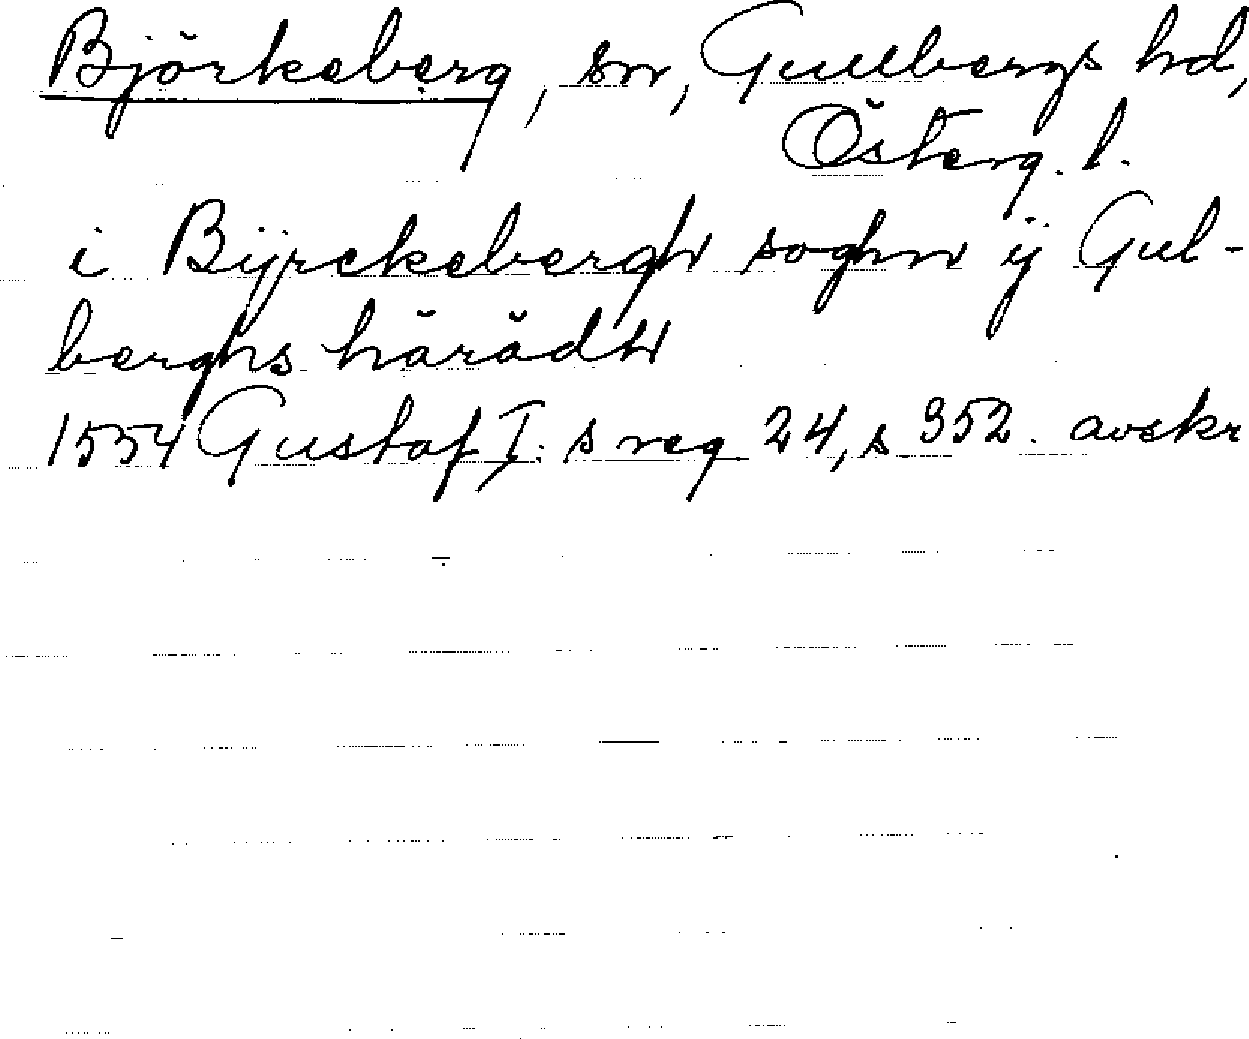 Björkeberg, sn, Gullbergs hd,
Österg. l.
i Bÿrckebergh soghn ÿ Gul-
berghs härädh
1554 Gustaf I:s reg 24, s 352. avskr